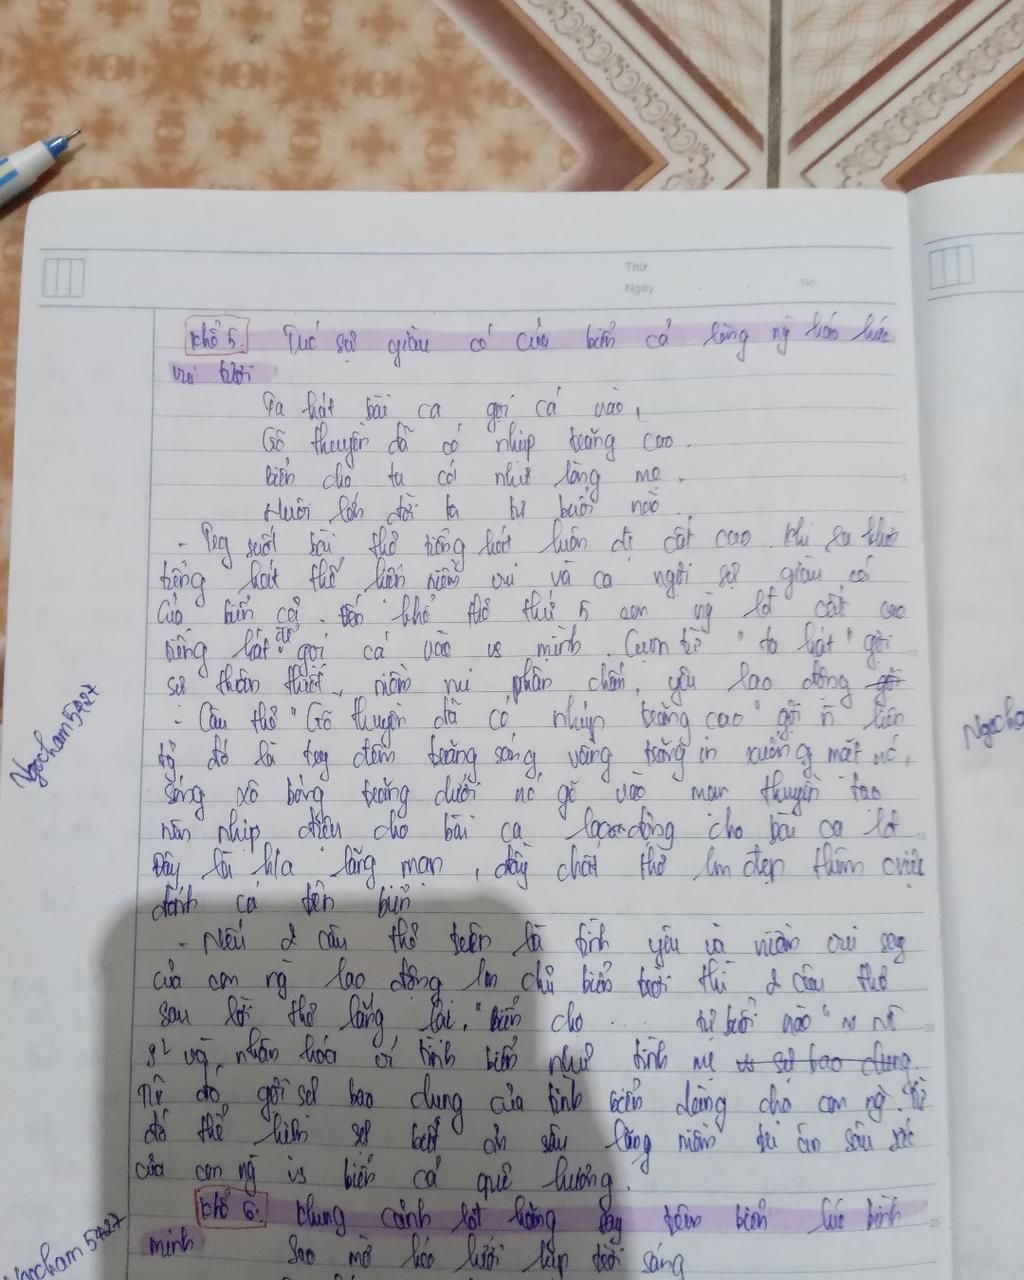 Thứ
Ngày No.
Khổ 5. sự giàu có của biển cả lòng ng
vui tươi
Ta hát bài ca gọi cá vào,
Gõ thuyền đã có nhịp trăng cao.
Biển cho ta cá như lòng mẹ.
Nuôi lớn đời ta tự buổi nào
- Trg suốt bài thơ tiếng hát luôn đc cất cao khi
tiếng hát thể hiện niềm vui và ca ngợi sự giàu có
của biển cả. Đến khổ thơ thứ 5 con ng lđ cất cao
tiếng hát để gọi cá vào vs mình. Cụm từ "ta hát" gợi
sự thân thiết, niềm vui phấn chấn, yêu lao động
- Câu thơ "Gõ thuyền đã có nhịp trăng cao" gợi liên
đó là trg đêm trăng sáng, vầng trăng in xuống mặt nc,
sóng xô bóng trăng dưới nc gõ vào mạn thuyền tạo
nên nhịp điệu cho bài ca lao động cho bài ca lđ
Đây là h/a lãng mạn, đầy chất thơ lm đẹp thêm
đánh cá trên biển
- Nếu 2 câu thơ trên là tình yêu và niềm vui say
của con ng lao động lm chủ biển trời thì 2 câu thơ
sau lời thơ lắng lại. "Biển cho ... tự buổi nào"
s² và nhân hóa ví tình biển như tình mẹ vs sự bao dung
đó gợi sự bao dung của tình biển dành cho con ng. Từ
đó thể hiện sự biết ơn sâu lắng niềm tri ân sâu sắc
của con ng vs biển cả quê hương.
Khổ 6: Khung cảnh trên biển lúc bình
minh
Sao mờ kéo lưới kịp trời sáng
Ngocham5427
Ngocham5427
Ngocha